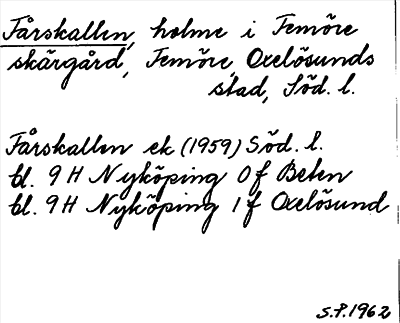 Fårskallen, holme i Femöre
skärgård, Femöre, Oxelösunds
stad, Söd. l.
Fårskallen ek (1959) Söd. l.
bl. 9H Nyköping 0f Beten
bl. 9H Nyköping 1f Oxelösund
S.P. 1962